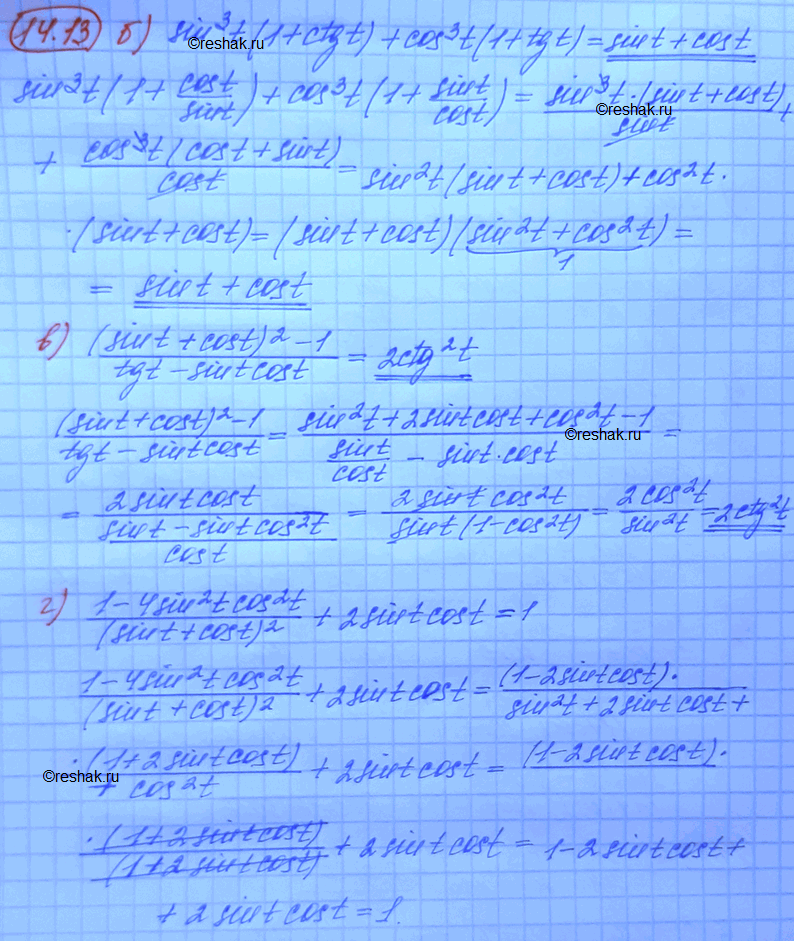 14.13 б) sin³t(1+ctgt)+cos³t(1+tgt)=sint+cost
©reshak.ru
sin³t(1+cost/sint)+cos³t(1+sint/cost)=sin³t·(sint+cost)/sint+
©reshak.ru
+ cos³t(cost+sint)/cost=sin²t(sint+cost)+cos²t·
·(sint+cost)=(sint+cost)(sin²t+cos²t)=
1
= sint+cost
в) ((sint+cost)²-1)/(tgt-sintcost)=2ctg²t
((sint+cost)²-1)/(tgt-sintcost)=(sin²t+2sintcost+cos²t-1)/(sint/cost-sint·cost)=
©reshak.ru
= 2sintcost/((sint-sintcos²t)/cost)=2sintcos²t/(sint(1-cos²t))=2cos²t/sin²t=2ctg²t
г) (1-4sin²tcos²t)/(sint+cost)²+2sintcost=1
(1-4sin²tcos²t)/(sint+cost)²+2sintcost=(1-2sintcost)·/(sin²t+2sintcost+
·(1+2sintcost)/(+cos²t)+2sintcost=(1-2sintcost)·
©reshak.ru
·(1+2sintcost)/(1+2sintcost)+2sintcost=1-2sintcost+
+2sintcost=1.